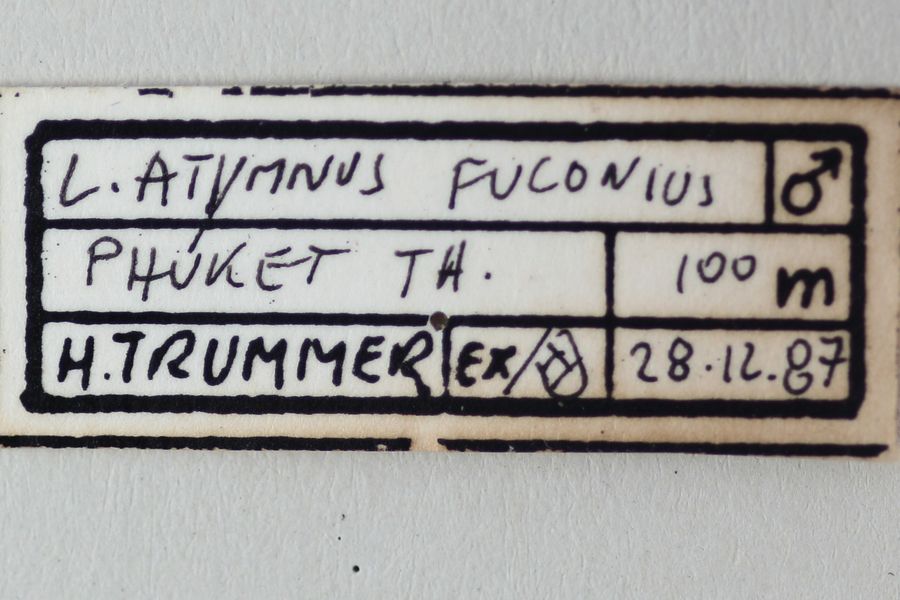 L. ATYMNUS FUCONIUS ♂
PHUKET TH. 100 m
H. TRUMMER EX/ 28.12.87